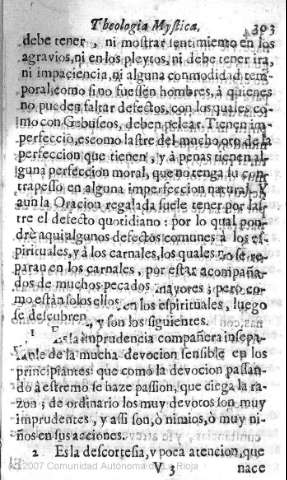 Theologia Mystica. 303
debe tener, ni mostrar sentimiento en los
agravios, ni en los pleytos, ni debe tener ira,
ni impaciencia, ni alguna commodidad tem-
poral, como si no fuessen hombres, à quienes
no pueden faltar defectos, con los quales co-
mo con Gebuseos, deben pelear. Tienen im-
perfeccio, es como lastre del mucho oro de la
perfeccion que tienen, y à penas tienen al-
guna perfeccion moral, que no tenga su con-
trapesso en alguna imperfeccion natural. Y
aun la Oracion regalada suele tener por las-
tre el defecto quotidiano: por lo qual pon-
drè aqui algunos defectos comunes à los es-
pirituales, y à los carnales, los quales no se re-
paran en los carnales, por estàr acompaña-
dos de muchos pecados mayores; pero co-
mo estàn solos ellos en los espirituales, luego
se descubren, y son los siguientes.
1 Es la imprudencia compañera insepa-
rable de la mucha devocion sensible en los
principiantes: que como la devocion passan-
do à estremo se haze passion, que ciega la ra-
zon; de ordinario los muy devotos son muy
imprudentes, y assi son, ò nimios, ò muy ni-
ños en sus acciones.
2 Es la descortesia, y poca atencion, que
V 3 nace
2007 Comunidad Autónoma de La Rioja